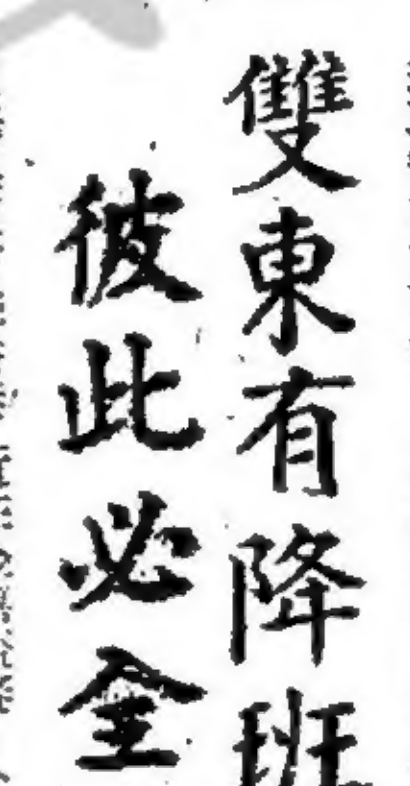 雙東有降班
彼此必全